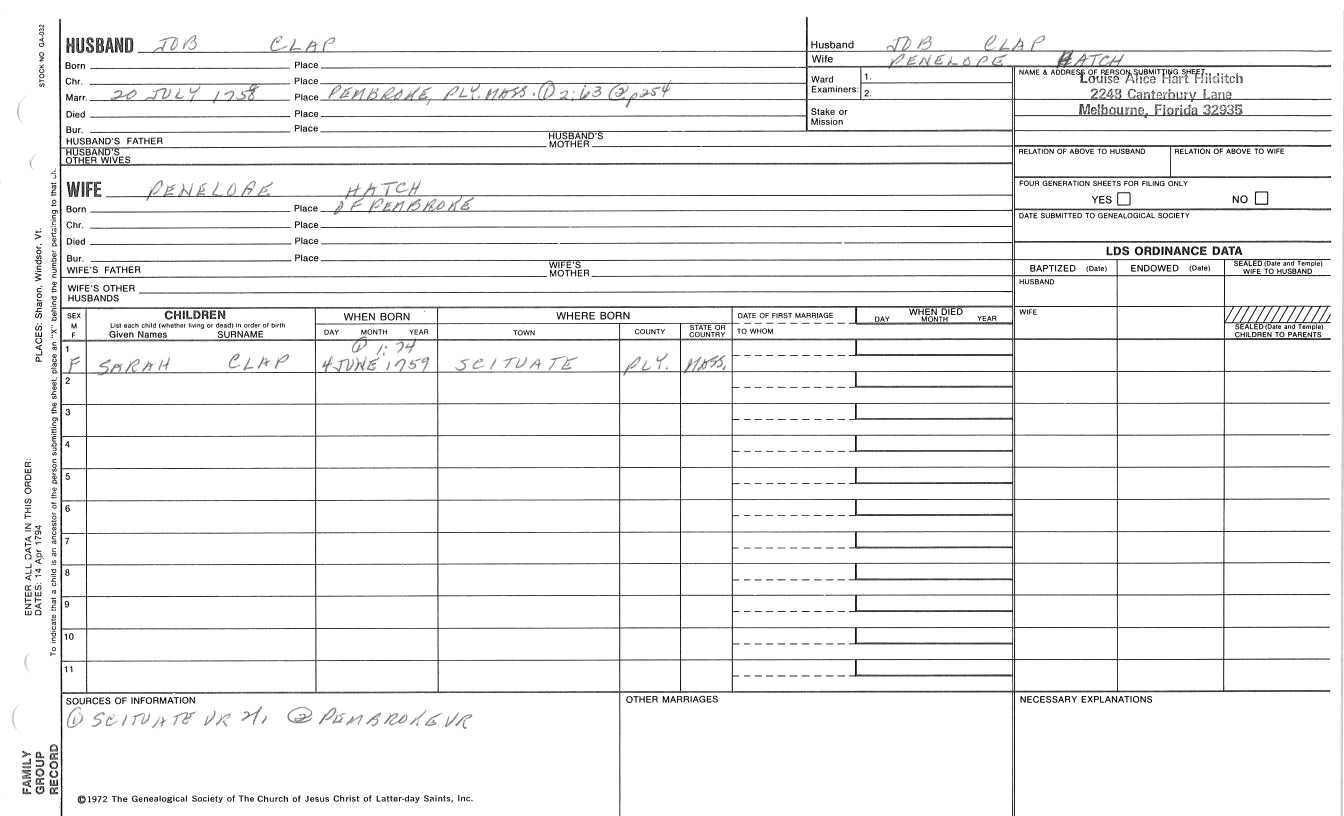 STOCK NO. GA-032
HUSBAND JOB CLAP
Born Place
Chr. Place
Marr. 20 JULY 1758 Place PEMBROKE, PLY. MASS. ① 2:63 ② p254
Died Place
Bur. Place
HUSBAND'S FATHER HUSBAND'S MOTHER
HUSBAND'S OTHER WIVES
Husband JOB CLAP
Wife PENELOPE HATCH
Ward Examiners: 1.
2.
Stake or Mission
NAME & ADDRESS OF PERSON SUBMITTING SHEET
Louise Alice Hart Hilditch
2248 Canterbury Lane
Melbourne, Florida 32935
RELATION OF ABOVE TO HUSBAND RELATION OF ABOVE TO WIFE
FOUR GENERATION SHEETS FOR FILING ONLY
YES NO
DATE SUBMITTED TO GENEALOGICAL SOCIETY
WIFE PENELOPE HATCH
Born Place OF PEMBROKE
Chr. Place
Died Place
Bur. Place
WIFE'S FATHER WIFE'S MOTHER
WIFE'S OTHER HUSBANDS
LDS ORDINANCE DATA
BAPTIZED (Date) ENDOWED (Date) SEALED (Date and Temple) WIFE TO HUSBAND
HUSBAND
WIFE
SEALED (Date and Temple) CHILDREN TO PARENTS
SEX M F
CHILDREN
List each child (whether living or dead) in order of birth
Given Names SURNAME
WHEN BORN
DAY MONTH YEAR
WHERE BORN
TOWN COUNTY STATE OR COUNTRY
DATE OF FIRST MARRIAGE
TO WHOM
WHEN DIED
DAY MONTH YEAR
1 ① 1:74
F SARAH CLAP 4 JUNE 1759 SCITUATE PLY. MASS.
2
3
4
5
6
7
8
9
10
11
SOURCES OF INFORMATION
① SCITUATE VR ② PEMBROKE VR
OTHER MARRIAGES
NECESSARY EXPLANATIONS
©1972 The Genealogical Society of The Church of Jesus Christ of Latter-day Saints, Inc.
PLACES: Sharon, Windsor, Vt.
ENTER ALL DATA IN THIS ORDER:
DATES: 14 Apr 1794
To indicate that a child is an ancestor of the person submitting the sheet, place an "X" behind the number pertaining to that
FAMILY
GROUP
RECORD